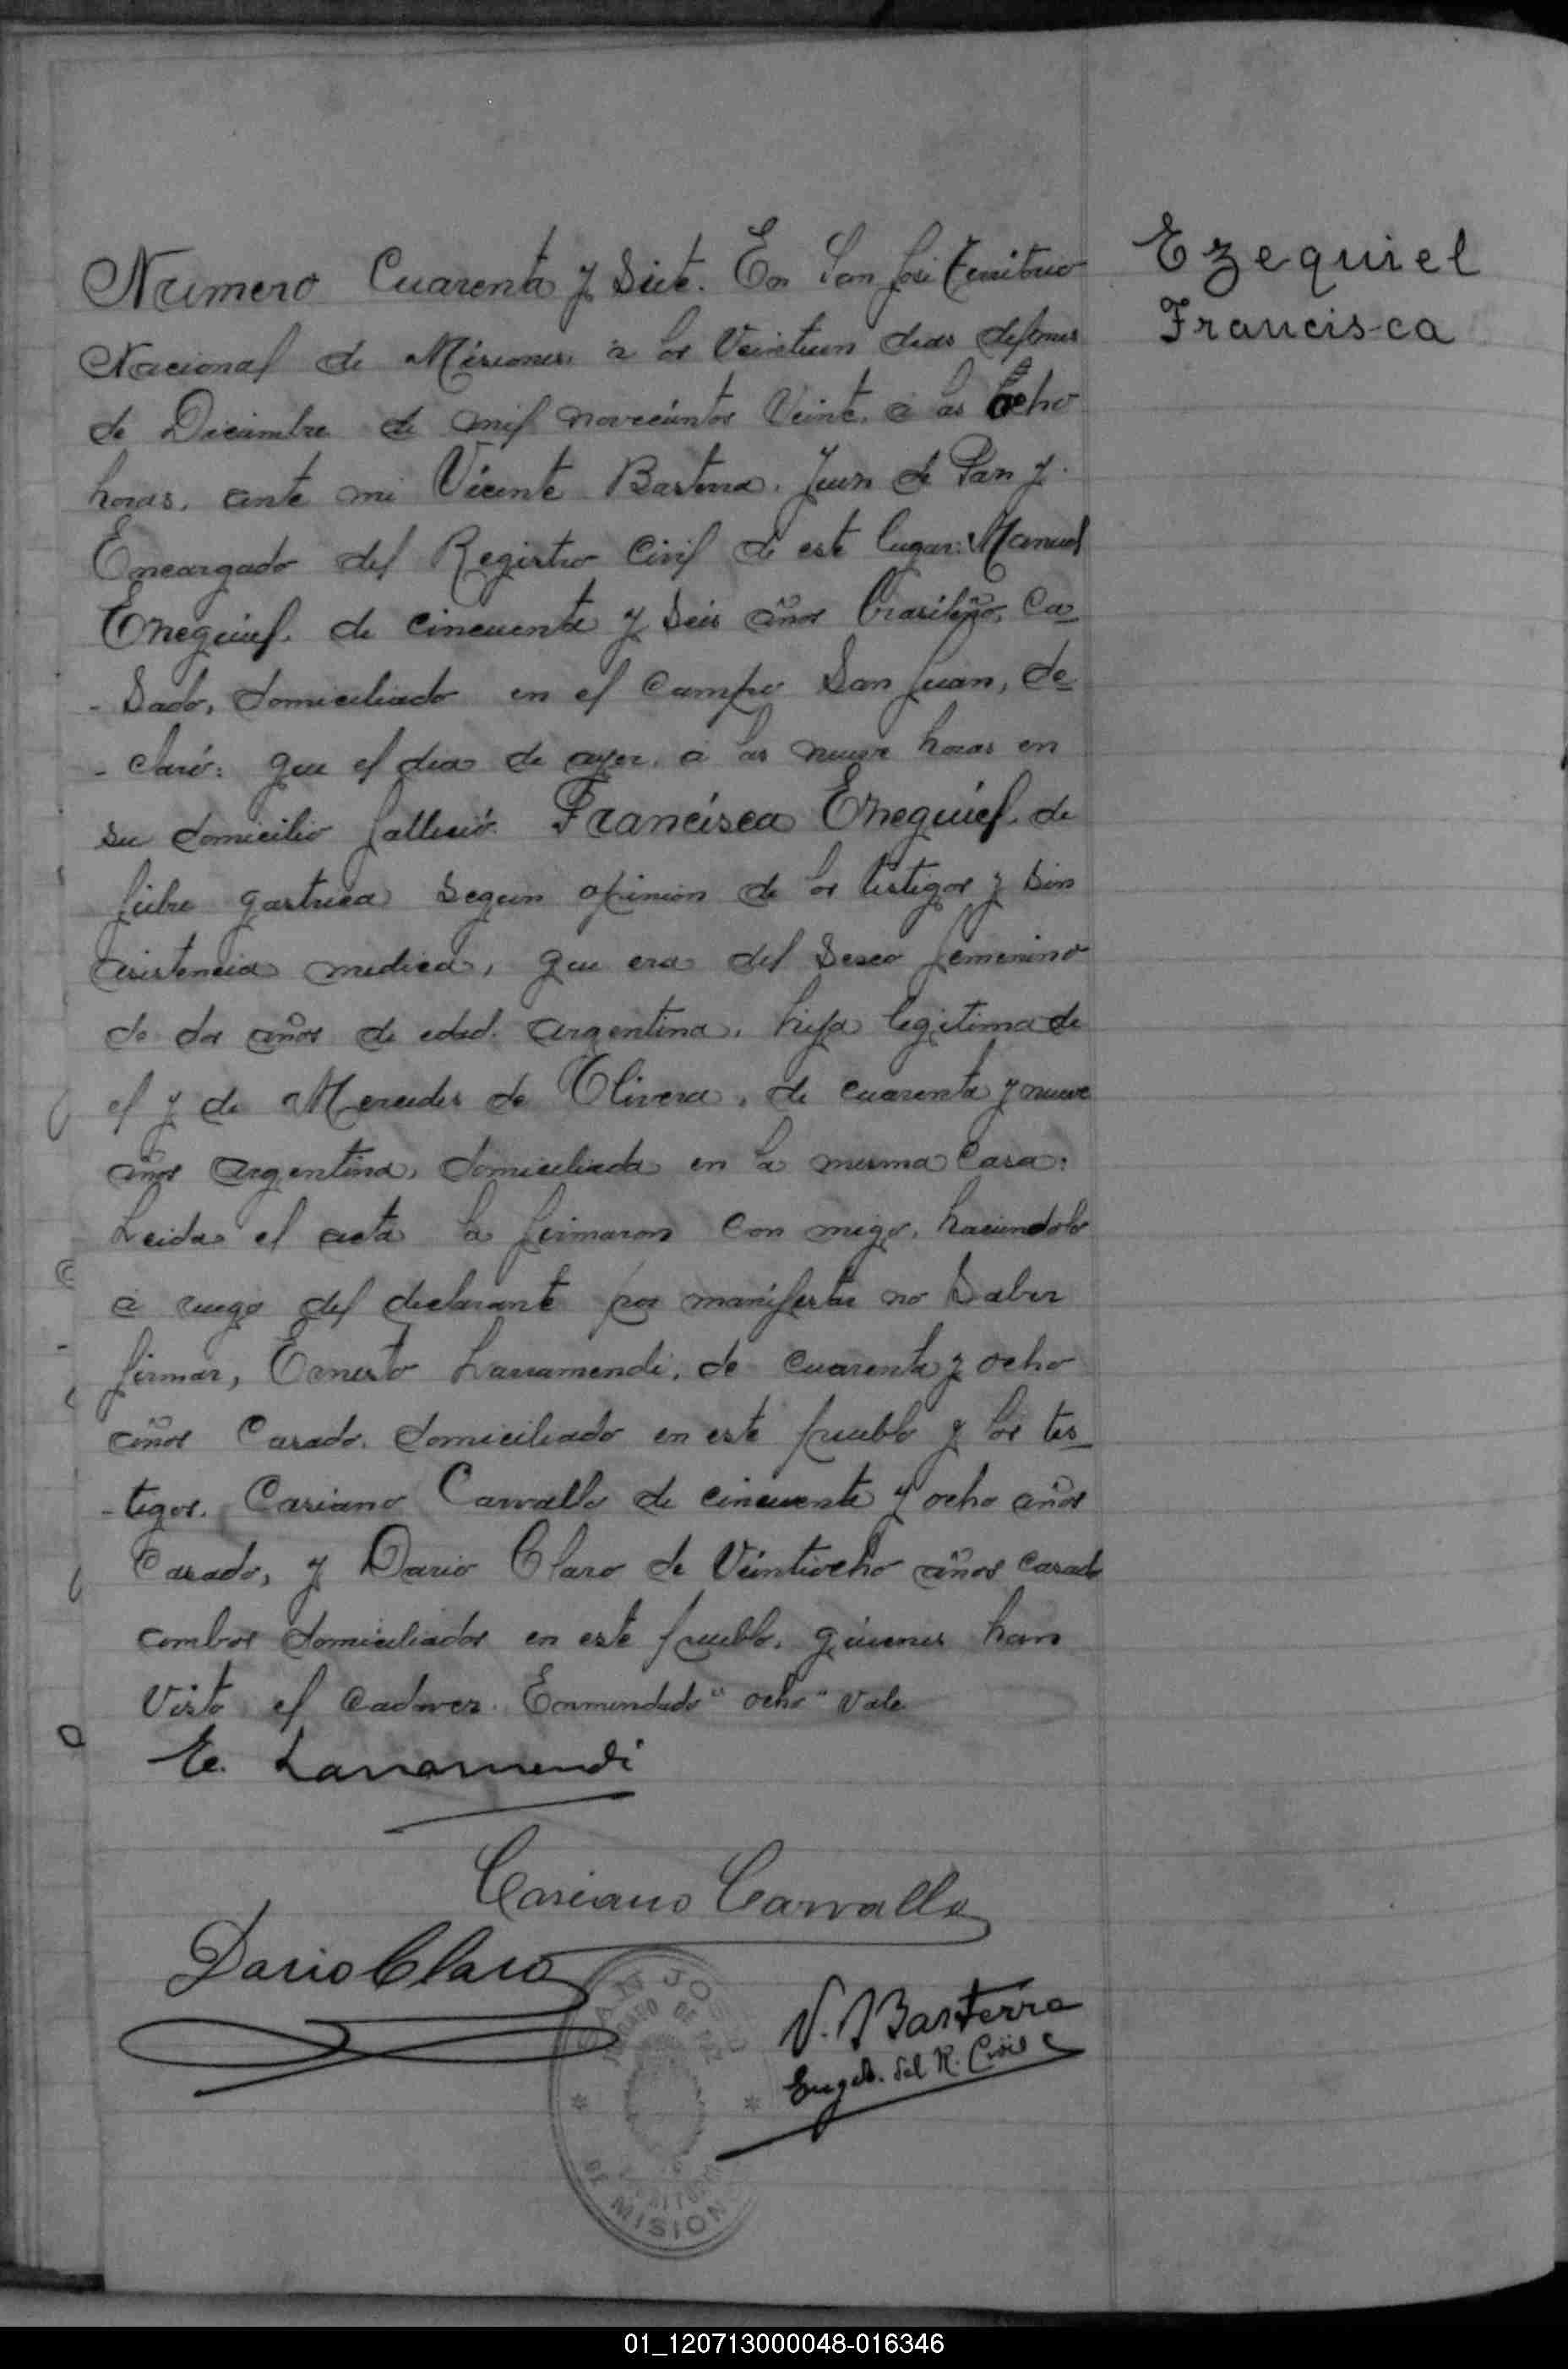 Ezequiel
Francisca
Numero Cuarenta y Siete. En San José Territorio
Nacional de Misiones, a los Veintiun dias del mes
de Diciembre de mil novecientos Veinte, a las ocho
horas, ante mi Vicente Basterra, Juez de Paz y
Encargado del Registro Civil de este lugar: Manuel
Ezequiel, de cincuenta y Seis años brasileño, Ca-
-Sado, domiciliado en el Campo San Juan, de-
-claró: que el dia de ayer, a las nueve horas en
su domicilio falleció Francisca Ezequiel, de
fiebre gastrica Segun opinion de los testigos y Sin
asistencia medica, que era del Sexo femenino
de dos años de edad, argentina, hija legitima de
el y de Mercedes de Olivera, de cuarenta y nueve
años argentina, domiciliada en la misma Casa:
Leida el acta la firmaron Con migo, haciendolo
a ruego del declarante por manifestar no Saber
firmar, Ernesto Larramendi, de cuarenta y ocho
años Casado, domiciliado en este pueblo y los tes-
-tigos, Casiano Carvallo de cincuenta y ocho años
Casado, y Dario Claro de Veintiocho años casado
ambos domiciliados en este pueblo, quienes han
Visto el Cadaver. Enmendado "ocho" Vale
E. Larramendi
Casiano Carvallo
Dario Claro
V. Basterra
Engdo. del R. Civil
SAN JOSE
JUZGADO DE PAZ
DE MISION
01_120713000048-016346